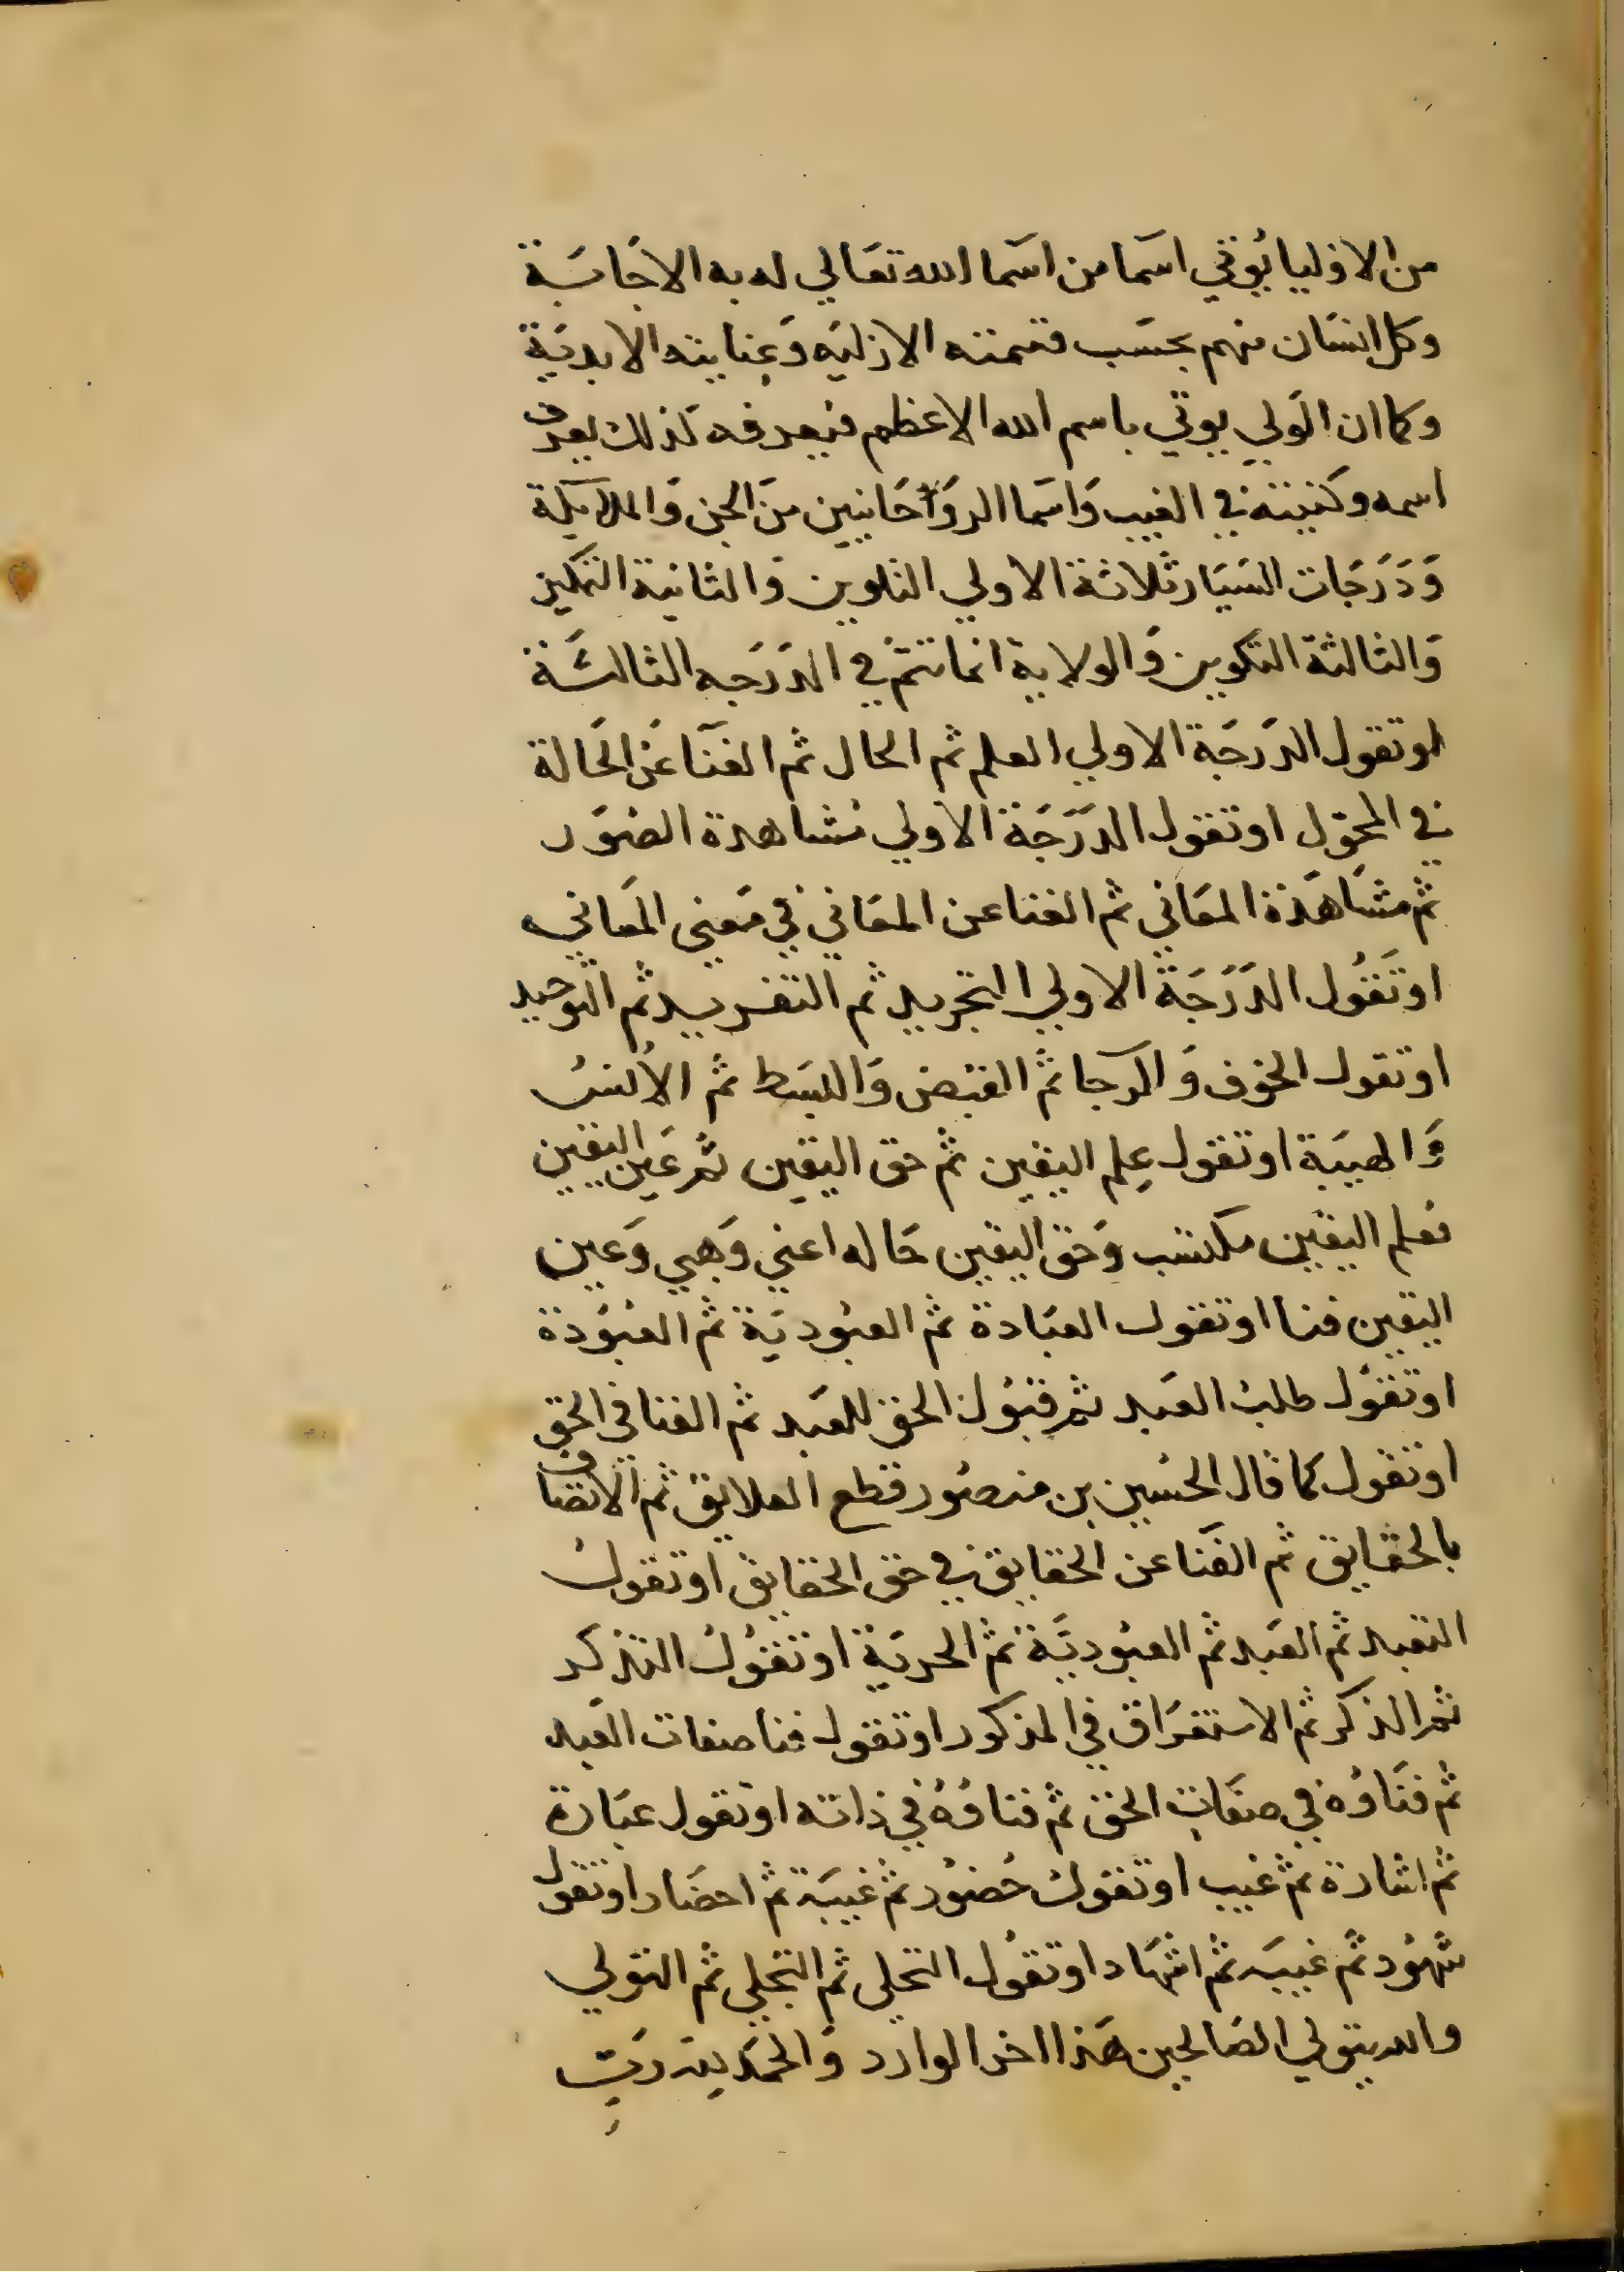 من الاوليا يُوتي اسَما من اسَما الله تعَالي له به الاجَابَة
وكل انسَان منهم بحسَب قسمته الازليَه وَعِنايته الابديَة
وكما ان الوَلي يوتي باسم الله الاعظم فيَعرفه كذلك يعرف
اسمه وكنيته في الغيب وَاسَما الروَاحَانيين منَ الجن وَالملايكة
وَدَرَجَات السَيَار ثلاثة الاولي التلوين وَالثانية التمكين
وَالثالثة التكوين وَالولاية انما تتم في الدَرَجه الثالثَة
او تقول الدَرجَة الاولي العلم ثم الحال ثم الفنَا عَن الحَالة
في المحوّل او تقول الدَرَجَة الاولي مُشاهدة الصُوَر
ثم مشَاهَدَة المعَاني ثم الفنا عن المعَاني في مَعنى المعَاني
او تَقُول الدَرَجَة الاولي التجريد ثم التفريد ثم التوحيد
او تقول الخوف وَالرجا ثم القبض وَالبسَط ثم الأنسُ
وَالهيبَة او تقول عِلم اليقين ثم حق اليقين ثم عَين اليقين
فعلم اليقين مكتسَب وَحق اليقين حَاله اعني وَهبي وَعين
اليقين فنا او تقول العبَادة ثم العبُوديَة ثم العبُوَدة
او تقوُل طلبُ العَبد ثم قبُول الحق للعَبد ثم الفنا في الحق
او تقول كما قال الحسَين بن منصُور قطع العلايق ثم الاتصَاف
بالحقَايق ثم الفَنا عن الحقايق في حق الحقَايق او تقولُ
التعبد ثم العَبد ثم العبُوديَة ثم الحريَة او تقوُلُ التذكر
ثم الذكر ثم الاستغرَاق في المذكور او تقول فنا صفات العَبد
ثم فنَاؤه في صفَاتِ الحق ثم فناؤهُ في ذاته او تقول عبَارة
ثم اشارة ثم غيب او تقولُ حُضوُر ثم غيبَة ثم احضَار او تقول
شهُود ثم غيبَة ثم اشهَاد او تقول التخلي ثم التجلي ثم التولي
والله يتولي الصَالحين هَذا اخر الوارد وَالحمَد لله رَبِّ